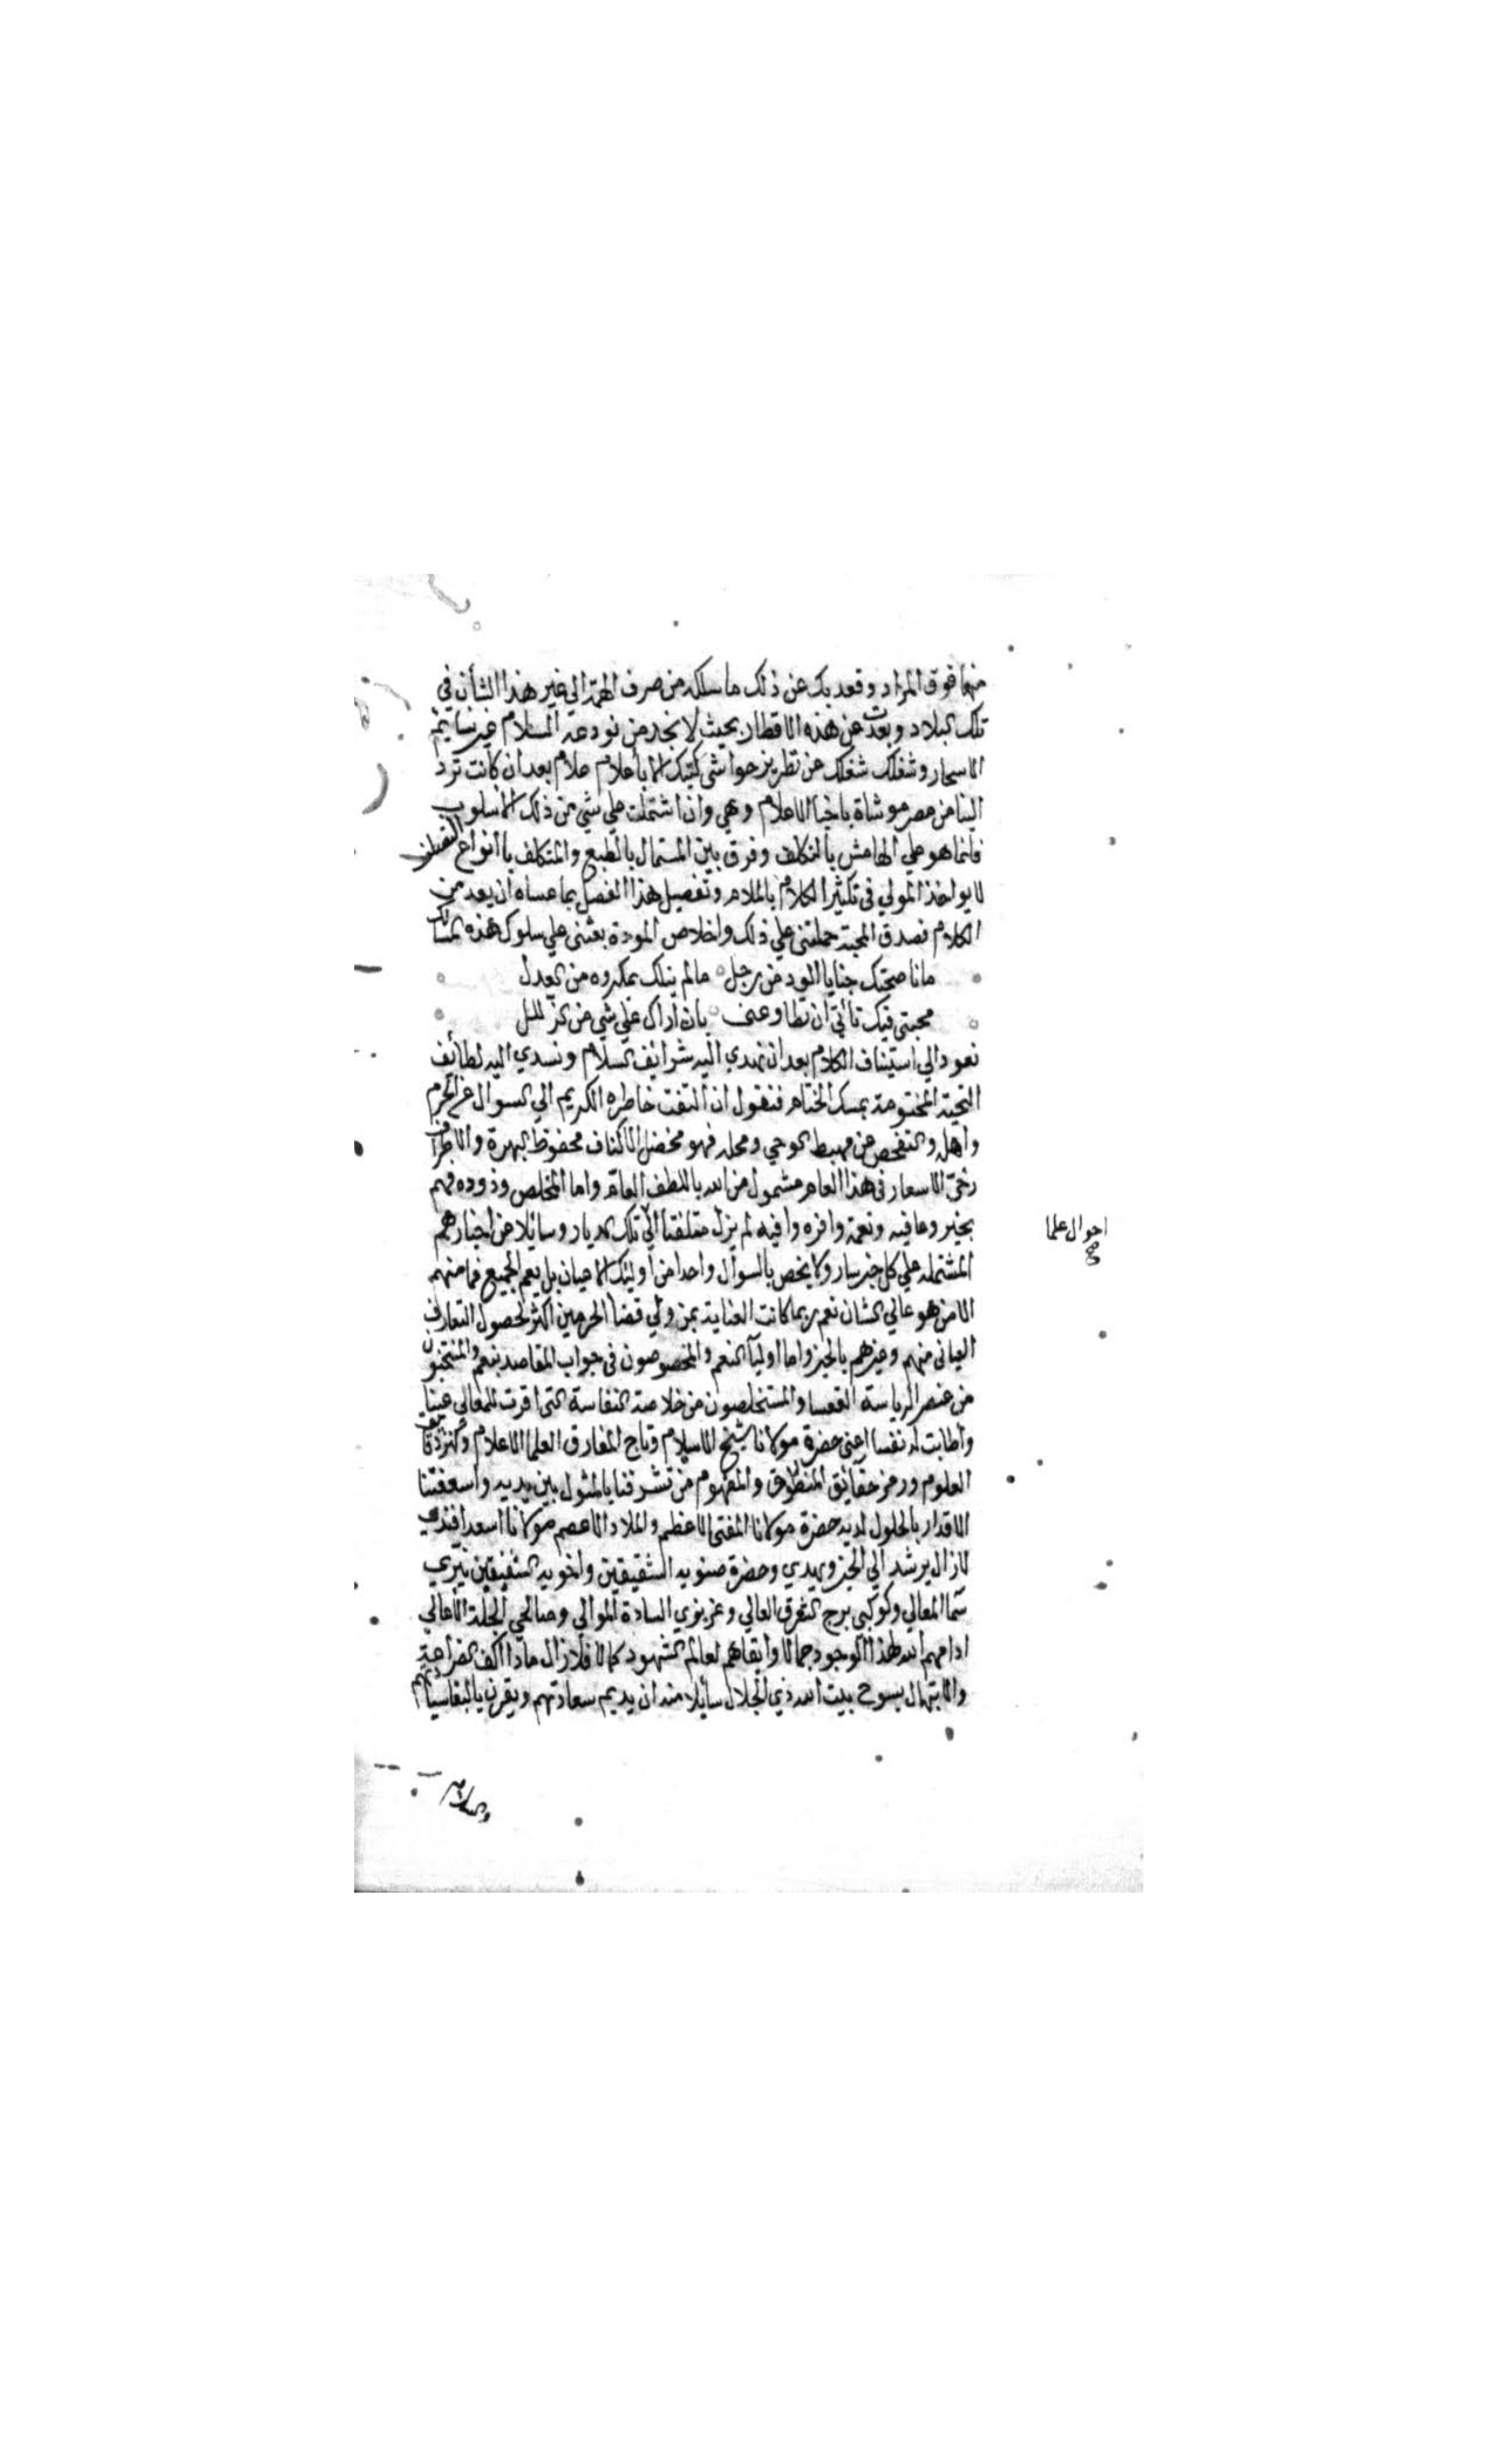 منها فوق المراد وقعد بك عن ذلك ما سلكه من صرف الهمة الي غير هذا الشأن في
تلك البلاد وبعدت عن هذه الاقطار بحيث لا نجد من نودعه السلام غير نسايم
الاسحار وشغلك شغلك عن تطريز حواشي كتبك الا باعلام علام بعد ان كانت ترد
الينا من مصر موشاة باخبار الاعلام وهي وان اشتملت علي شي من ذلك الاسلوب
فانما هو علي الهامش بالتكلف وفرق بين المستمال بالطبع والمتكلف باانواع
لا يواخذ المولي في تكثير الكلام بالملام وتفصيل هذا الفصل بما عساه ان يعد من
الكلام فصدق المحبة حملتني علي ذلك واخلاص المودة بعثني علي سلوك هذه المسالك
ما ناصحتك خبايا الود من رجل ما لم ينلك بمكروه من العدل
محبتي فيك تأبي ان تطاوعني بان اراك علي شي من الزلل
نعود الي استيناف الكلام بعد ان نهدي اليه شرائف السلام ونسدي اليه لطائف
التحية المختومة بمسك الختام فنقول ان التفت خاطره الكريم الي السوال عن الحرم
واهله والتفحص عن مهبط الوحي ومحله فهو مخضل الاكناف محفوظ البهرة والاطراف
رخي الاسعار في هذا العام مشمول من الله باللطف العام واما المخلص وذووه فهم
بخير وعافيه ونعمة وافره وافيه لم يزل متلفتا الي تلك الديار وسايلا عن اخبارهم
المشتمله علي كل خبر سار ولا يخص بالسوال واحدا من اوليك الاعيان بل يعم الجميع فما منهم
الا من هو عالي الشان نعم ربما كانت العناية بمن ولي قضا الحرمين اكثر لحصول التعارف
العياني منهم وخبرهم بالخبر واما اوليآ النعم والمخصوصون في جواب المقاصد بنعم والمنتخبون
من عنصر الرياسة القعسا والمستخلصون من خلاصة النفاسة التي اقرت للمعالي عينا
واطابت له نفسا اعني حضرة مولانا شيخ الاسلام وتاج المفارق العلما الاعلام وكنز دقايق
العلوم ورمز حقايق المنطوق والمفهوم من تشرفنا بالمثول بين يديه واسعفتنا
الاقدار بالحلول لديه حضرة مولانا المفتي الاعظم والملاذ الاعصم مولانا اسعد افندي
لا زال يرشد الي الخير ويهدي وحضرة صنويه الشقيقين واخويه الشفيقين نيري
سما المعالي وكوكبي برج الشرف العالي وعزيزي السادة الموالي وصالحي الجلة الاعالي
ادامهم الله لهذا الوجود جمالا وابقاهم لعالم الشهود كمالا فلا زال مادا اكف الضراعة
والابتهال بسوح بيت الله ذي الجلال سايلا منه ان يديم سعادتهم ويقرن بالبقا سيادتهم
والسلام
احوال علما
صح